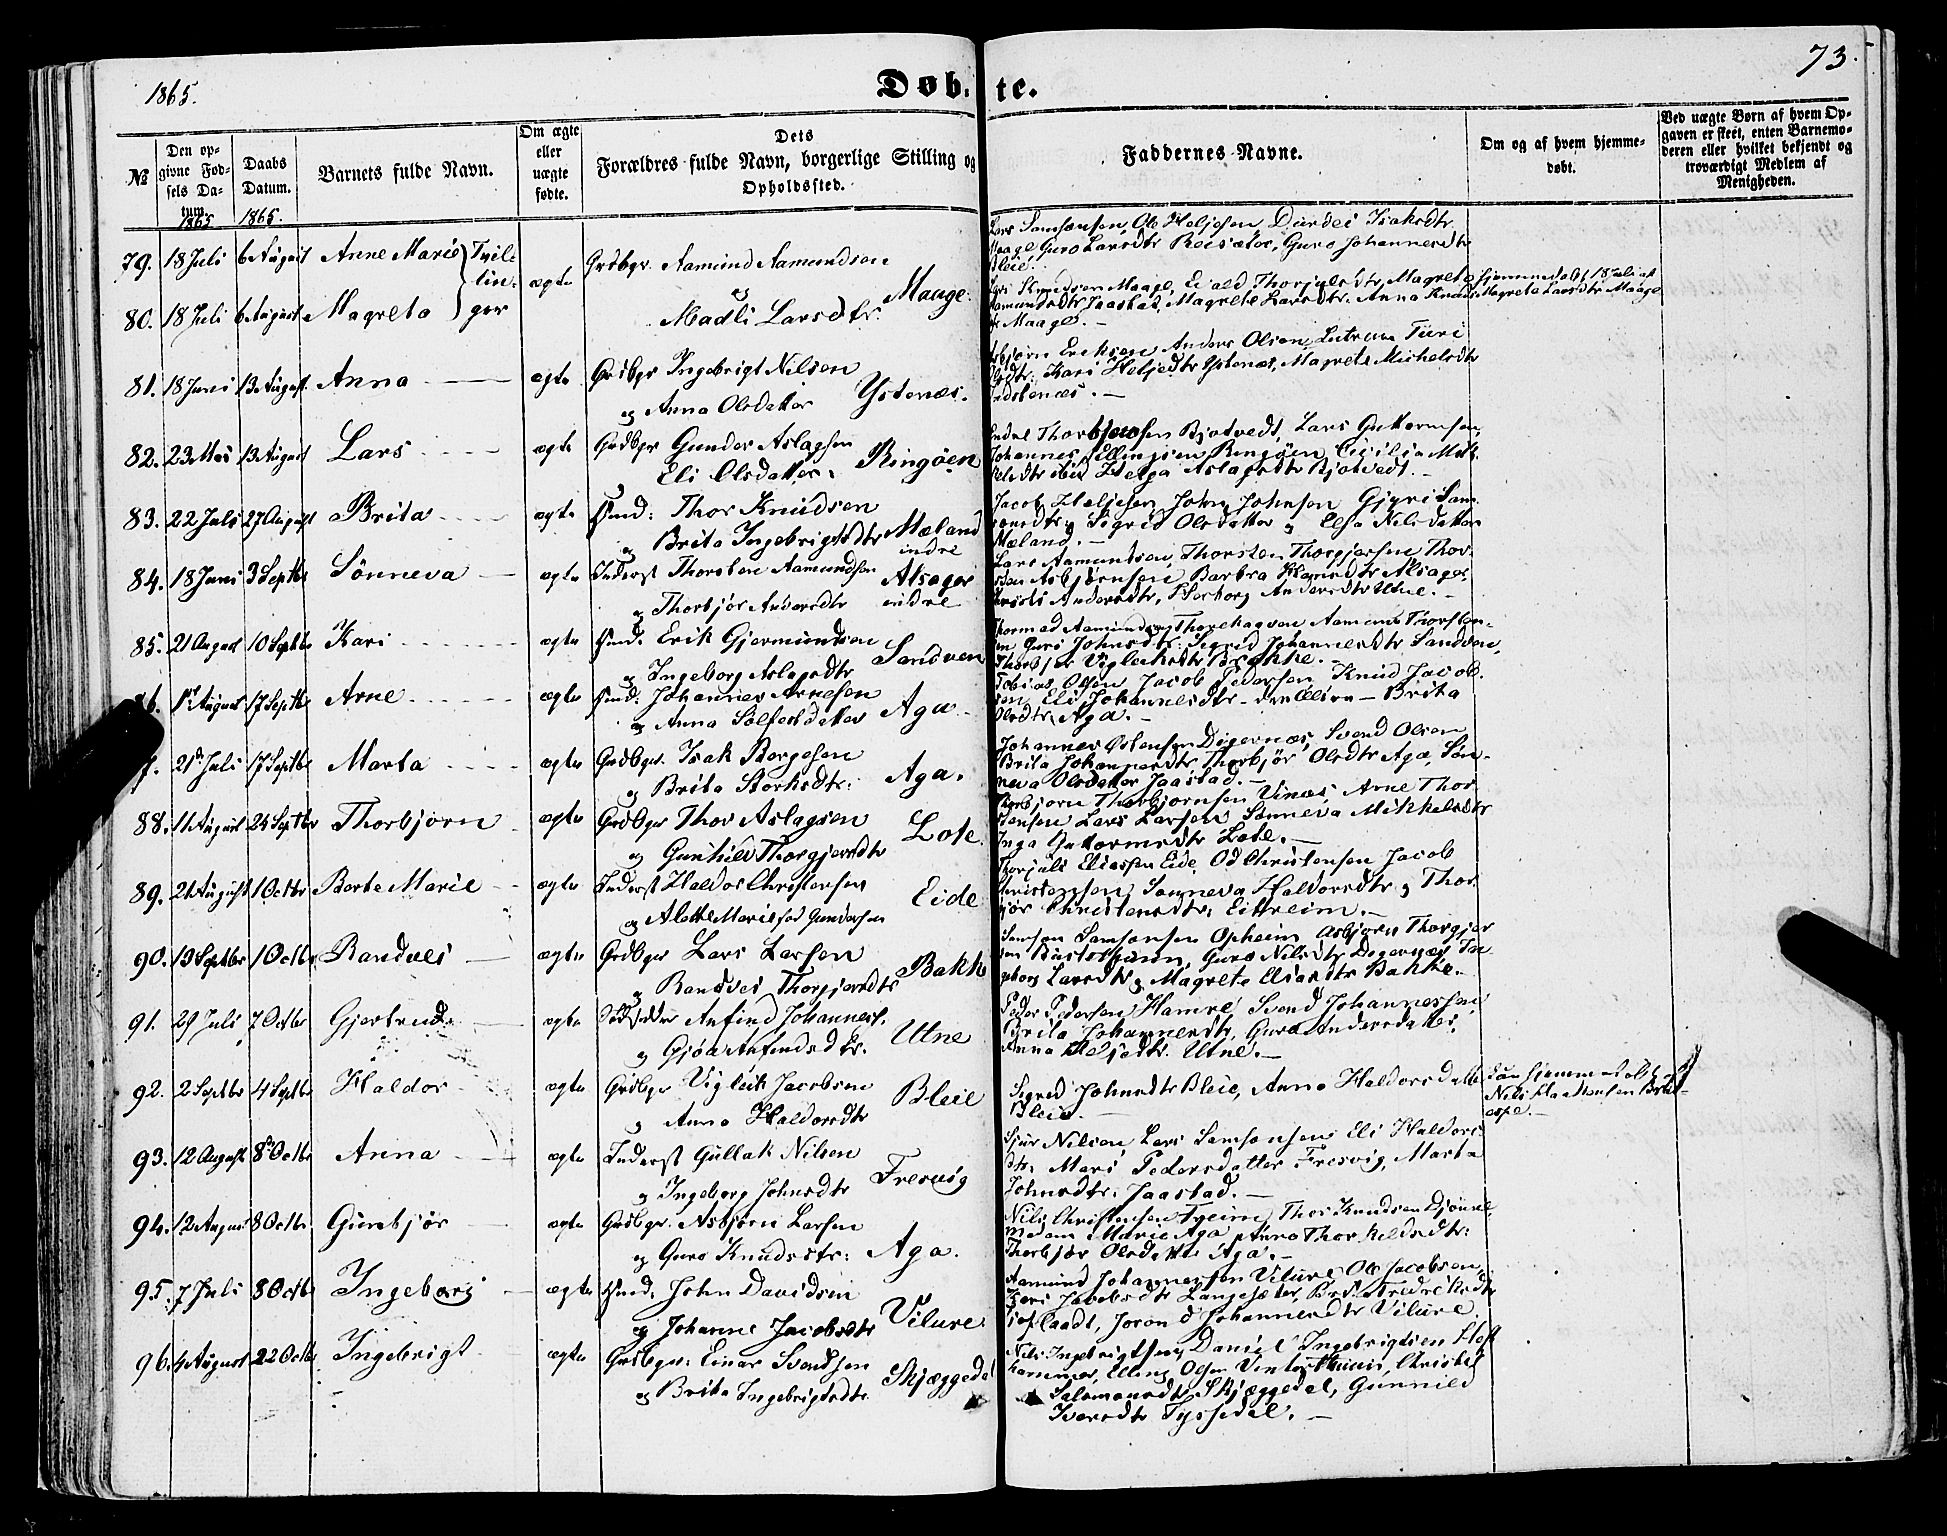 1865.
Døb- te.
73.
№
Den opgivne Fødsels Datum.
1865
Daabs Datum.
1865.
Barnets fulde Navn.
Om ægte eller uægte fødte.
Dets Forældres fulde Navn, borgerlige Stilling og Opholdssted.
Faddernes Navne.
Om og af hvem hjemmedøbt.
Ved uægte Børn af hvem Opgaven er skeet, enten Barnemoderen eller hvilket bekjendt og troværdigt Medlem af Menigheden.
79. 18 Juli 6 August Anne Marie Tvil- ægte Grdbgr. Aamund Aamundsen
Lars Samsonsen, Ole Heljesen, Durdei Isaksdtr
Maage, Guro Larsdtr Reisæter, Guro Johannesdtr
Bleie.
lin-
80. 18 Juli 6 August Magreta ger
og Madli Larsdtr. Maage.
Lars Knudsen Maage, Thorjulsdtr, Magreta
Aamundsdtr Jaastad, Magrete Larsdtr. Anna Knuds-
dtr Maage.
Hjemmedøbt 18 Juli af
Magreta Larsdtr Maage
81. 18 Juni 13 August Anna ægte Grdbgr Ingebrigt Nilsen
og Anna Olsdatter Ystenæs.
Asbjørn Eriksen Anders Olsen Lutram Turi
Olsdtr. Kari Heljedtr Ystenæs, Magrete Michelsdtr
Indstenæs.
82. 23 Mai 13 August Lars ægte Grdbgr Gunder Aslagsen
Eli Olsdatter. Ringøen
Endre Thorbjørnsen Bjotvedt, Lars Guttormsen,
Johannes Ellingsen Ringøen Cicilia Mik-
kelsdtr ibid Helga Aslagsdtr Bjotvedt.
83. 22 Juli 27 August Brita ægte Hmd: Thor Knudsen
og Brita Ingebrigtsdtr Mæland indre
Jacob Heljesen John Johnsen Gjyri Sam-
sonsdtr Sigrid Olsdatter og Elsa Nilsdatter
Mæland.
84. 18 Juni 3 Septbr Sönneva ægte Inderst Thorsten Aamundsen
og Thorbjør Andersdtr Alsager indre
Lars Aamundsen, Thorsten Thorgjersen Thor-
sten Asbjørnsen Barbra Hansdtr Alsager,
Kristi Andersdtr, Herborg Andersdtr Utne.
85. 21 August 10 Septbr Kari ægte Hmd. Erik Gjermundsen
og Ingeborg Aslagsdtr Sandven
Thormod Aamundsen Thorehagven Aamund Thorsten-
sen Guri Johnsdtr. Sigrid Johannesdtr Sandven,
Thorbjør Vigleiksdtr Brakke.
86. 1st August 17 Septbr Arne ægte Hmd: Johannes Arnesen
og Anna Solfestdatter Aga
Tobias Olsen Jacob Pedersen Knud Jacob-
sen, Eli Johannesdtr Brita
Olsdtr Aga.
87. 21de Juli 17 Septbr Marta ægte Grdbgr. Isak Borgesen
og Brita Storksdtr: Aga.
Johannes Østensen Digernæs, Svend Olsen
Brita Johannesdtr Thorbjør Olsdtr Aga, Søn-
neva Olsdatter Jaastad.
88. 11 August 24 Septbr Thorbjørn ægte Grdbgr Thor Aslagsen
og Gunhild Thorgjersdtr Lote.
Thorbjørn Thorbjørnsen Vinæs, Arne Thor-
stensen Lars Larsen Sønneva Mikkelsdtr
Inga Guttormsdtr Lote.
89. 21 August 1 Octbr Berte Marie ægte Inderst Haldor Christensen
og Alette Mariesød Gundersen Eide
Thorjuls Eliassen Eide, Od Christensen Jacob
Christensen, Sønneva Haldorsdtr og Thor-
bjør Christensdtr. Eitreim.
90. 13 Septbr 1 Octbr. Randvei ægte Grdbgr Lars Larsen
og Randvei Thorgjersdtr Bakke
Samson Samsonsen Opheim, Asbjørn Thorgjer-
sen Guro Nilsdtr Degernæs In-
geborg Larsdtr og Magreta Eliasdtr Bakke.
91. 29 Juli 7 Octbr Gjertrud ægte Anfind Johannesen
og Gjøa Anfindsdtr. Utne
Peder Pedersen Hamre, Svend Johannessen,
Brita Johannesdtr, Guro Andersdatter,
Anna Heljedtr. Utne.
92. 2 Septbr 4 Septbr Haldor ægte Grdbgr Vigleik Jacobsen
og Anna Haldorsdtr Bleie
Sigrid Johnsdtr Bleie, Anna Haldorsdatter
Bleie.
hjemmedøbt af
Nils
espe.
93. 12 August 8de Octbr Anna ægte Inderst Gullak Nilsen
og Ingeborg Johnsdtr Fresvig
Sjur Nilsen, Lars Samsonsen Eli Haldors-
dtr. Mari Pedersdatter Fresvig, Marta
Johnsdtr. Jaastad.
94. 12 August 8 Octbr. Gunbjør ægte Grdbgr. Asbjørn Larsen
og Guro Knudsdtr: Aga.
Nils Christensen Tveim, Thor Knudsen Djønne,
Madam Marie Aga Anna Thorkelsdtr:
Thorbjør Olsdatter Aga.
95. 7 Juli 8 Octbr Ingeborg ægte Hmd. John Davidsen
og Johanne Jacobsdtr Vilure
Aamund Johannessen Vilure Ole Jacobsen,
Kari Jacobsdtr Langesæter, Brita Fredriksdtr
Joron d Johannesdtr Vilure.
96. 4 August 22 Octbr Ingebrigt ægte Grdbgr. Einar Svendsen
og Brita Ingebrigtsdtr Skjæggedal
Nils Ingebrigtsen, Daniel Ingebrigtsen
hammer, Elling Olsen Christi
Salamonsdtr Skjæggedal, Gunnild
Iversdtr Tyssedal.